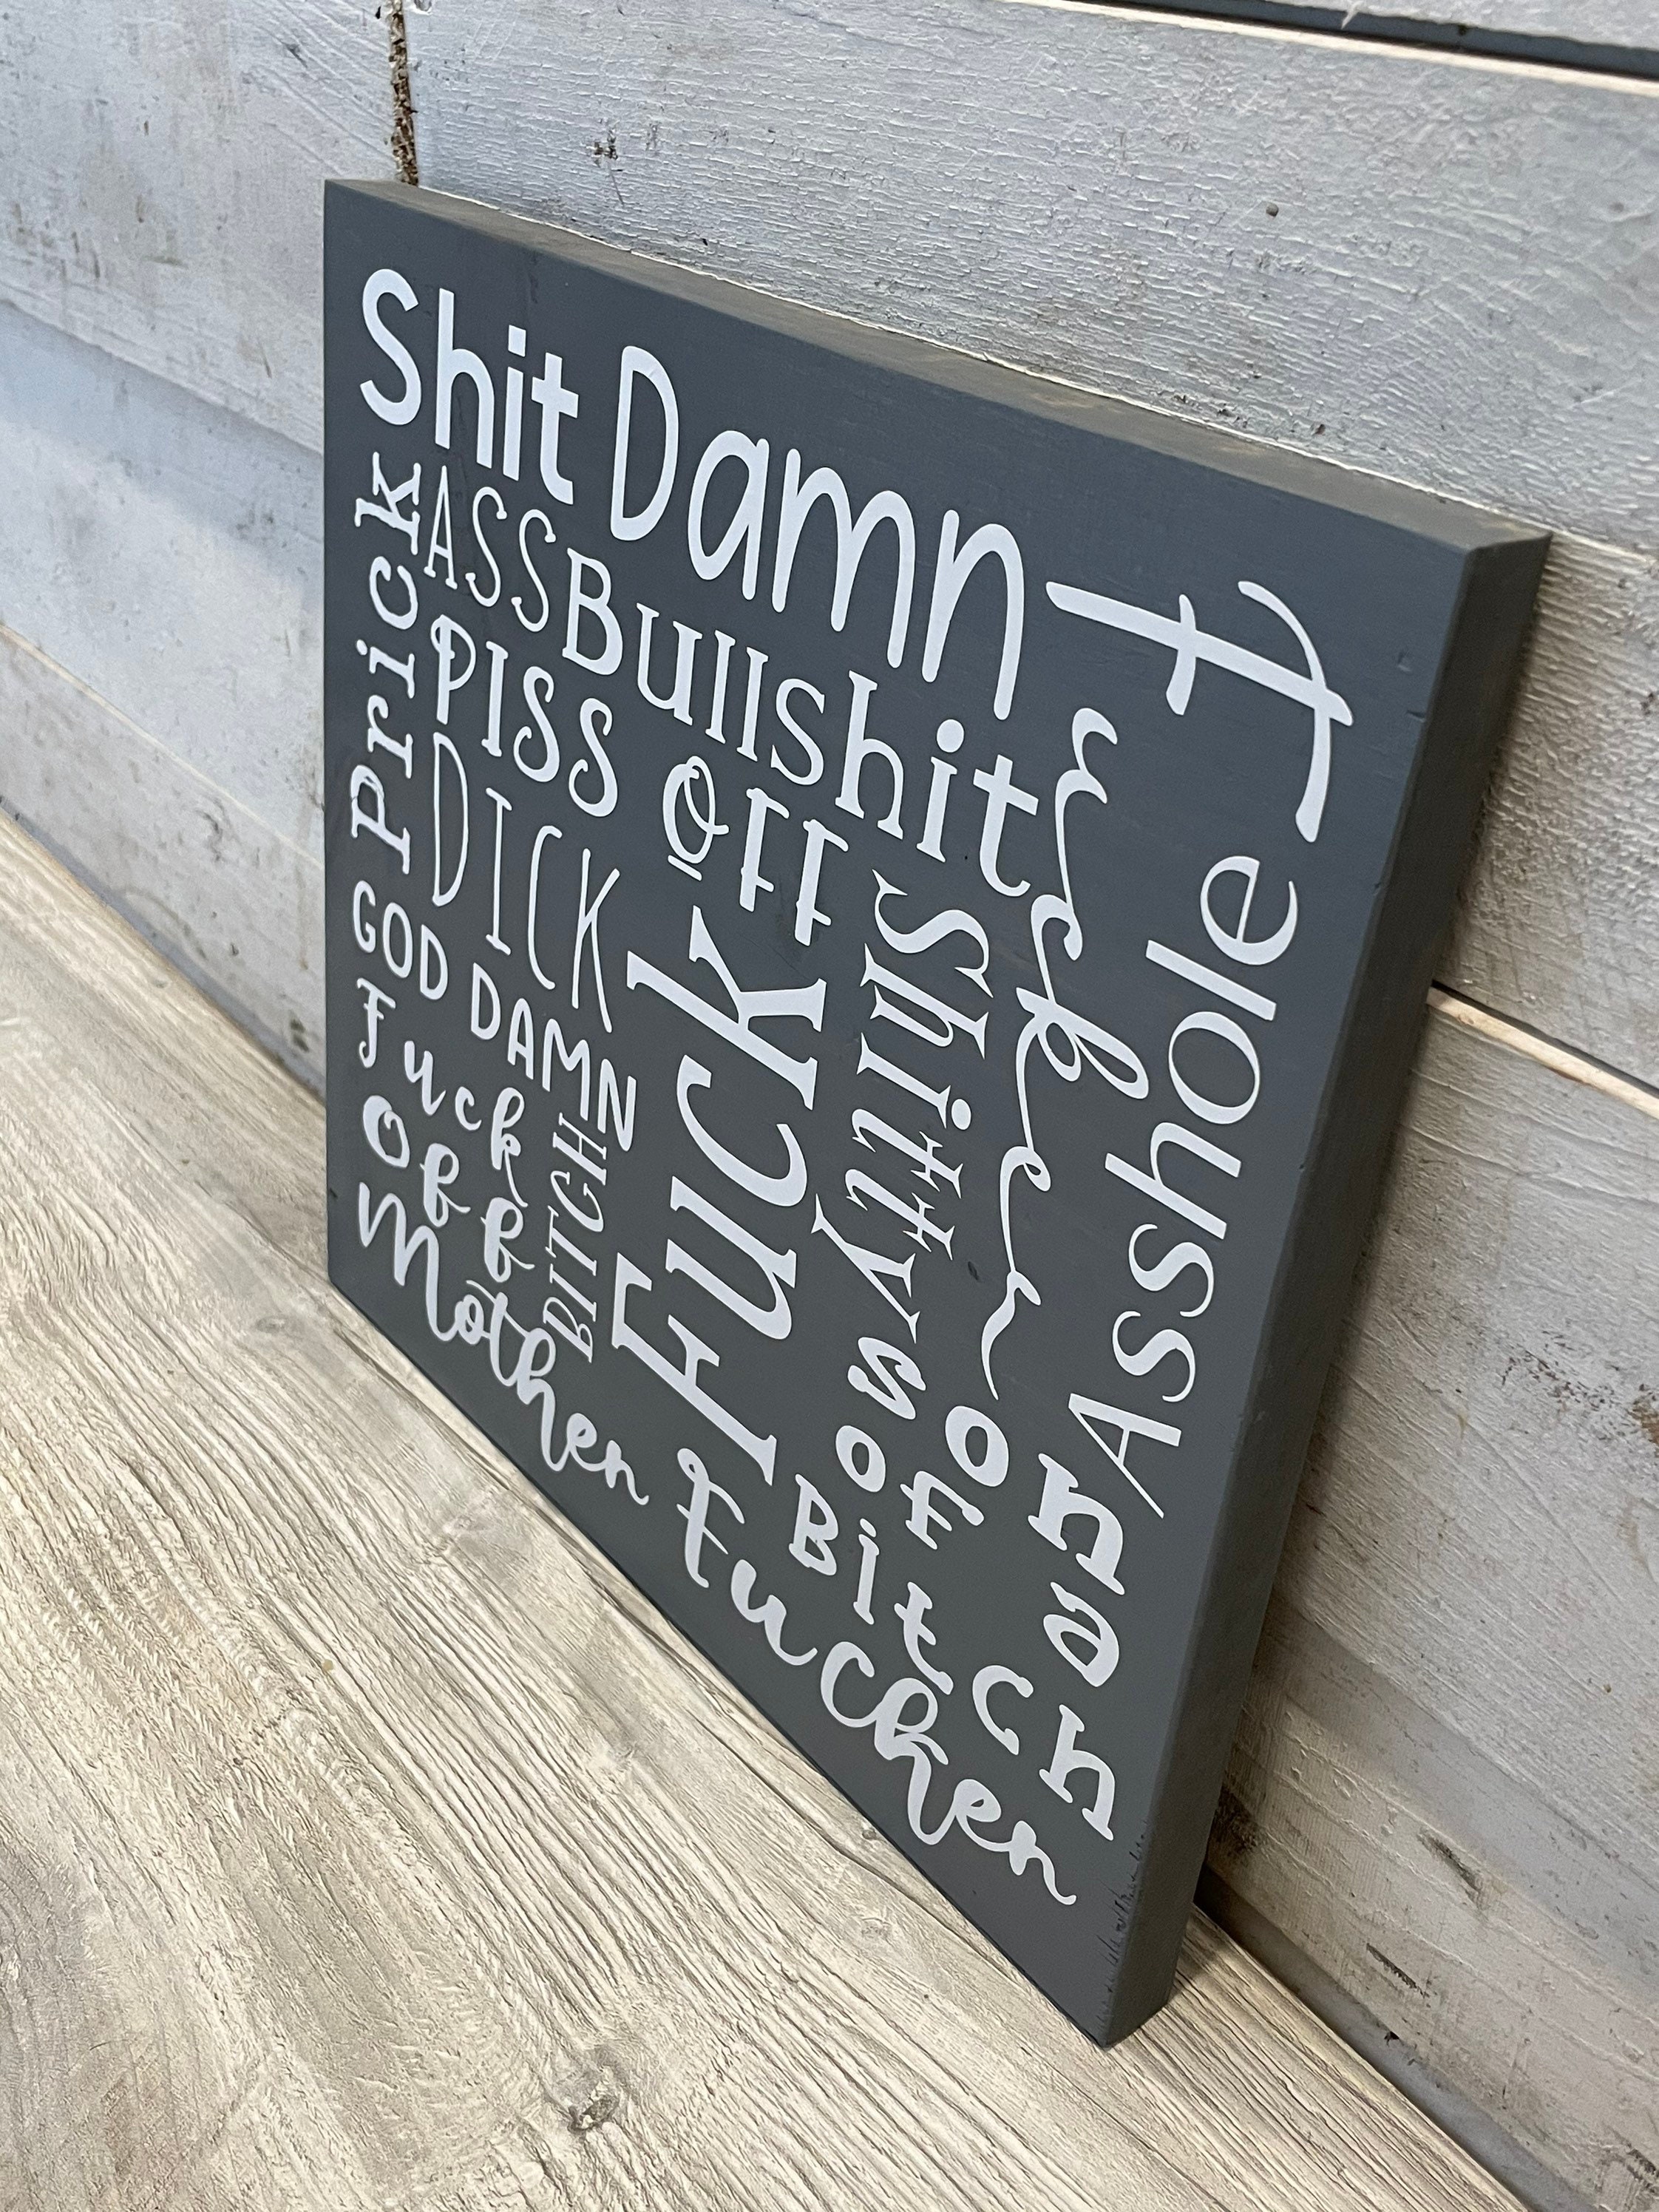 Shit Damn
Prick
ASS Bullshit
PISS Off
DICK
FUCK
Shitty
Asshole
GOD DAMN
Fuck
Off
BITCH
Son
of a
Bitch
Mother Fucker